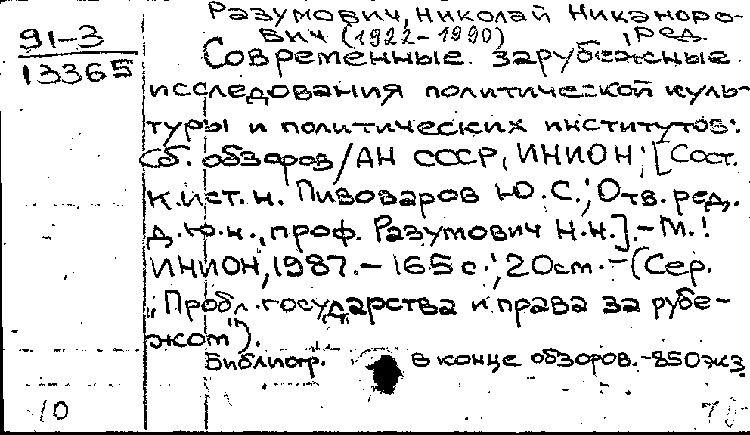 Разумович, Николай Никаноро-
вич (1922-1990) , ред.
91-3
13365
Современные зарубежные
исследования политической куль-
туры и политических институтов:
Сб. обзоров/АН СССР, ИНИОН; [Сост.
к.ист.н. Пивоваров Ю.С.; Отв. ред.
д.ю.н., проф. Разумович Н.Н.].- М.:
ИНИОН, 1987.- 165 с.; 20 см.- (Сер.
„Пробл. государства и права за рубе-
жом").
Библиогр. в конце обзоров.-850 экз
10